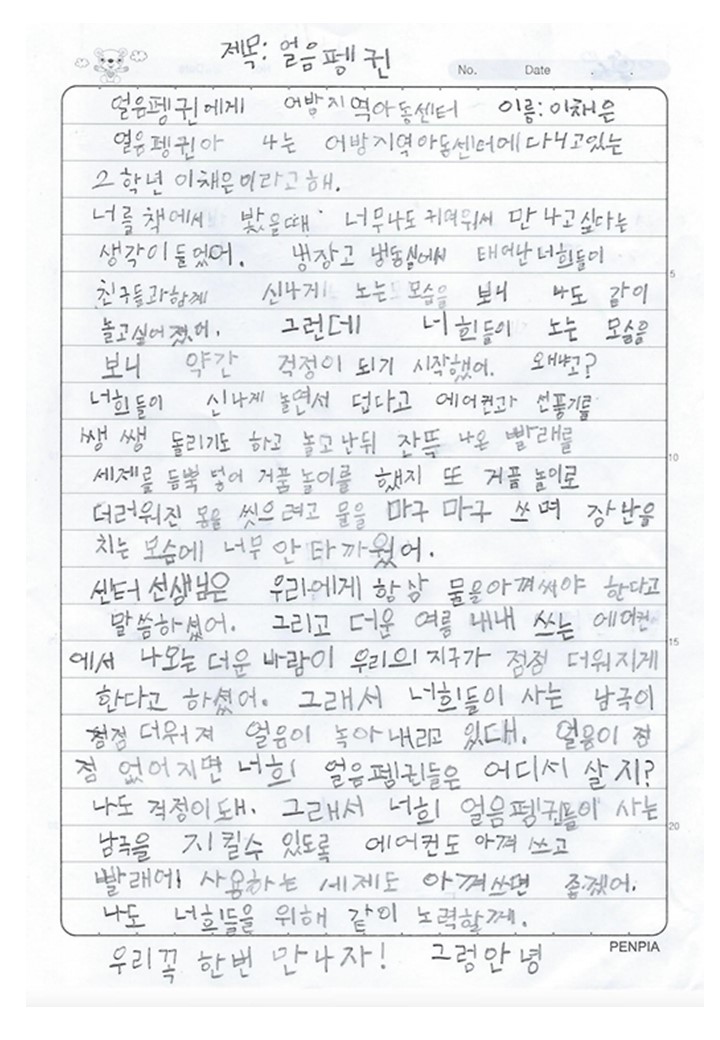 제목: 얼음펭귄
No. Date . .
얼음펭귄에게 어방지역아동센터 이름: 이채은
얼음펭귄아 나는 어방지역아동센터에 다니고있는
2학년 이채은이라고해.
너를 책에서 봤을때 너무나도 귀여워서 만나고싶다는
생각이들었어. 냉장고 냉동실에서 태어난너희들이
친구들과함께 신나게 노는 모습을 보니 나도 같이
놀고싶어졌어. 그런데 너희들이 노는 모습을
보니 약간 걱정이 되기 시작했어. 왜냐고?
너희들이 신나게 놀면서 덥다고 에어컨과 선풍기를
쌩 쌩 돌리기도 하고 놀고난뒤 잔뜩 나온 빨래를
세제를 듬뿍 넣어 거품놀이를 했지 또 거품놀이로
더러워진 몸을 씻으려고 물을 마구 마구 쓰며 장난을
치는 모습에 너무 안타까웠어.
센터 선생님은 우리에게 항상 물을아껴써야 한다고
말씀하셨어. 그리고 더운 여름 내내 쓰는 에어컨
에서 나오는 더운 바람이 우리의 지구가 점점 더워지게
한다고 하셨어. 그래서 너희들이 사는 남극이
점점 더워져 얼음이 녹아내리고 있대. 얼음이 점
점 없어지면 너희 얼음펭귄들은 어디서 살지?
나도 걱정이돼. 그래서 너희 얼음펭귄들이 사는
남극을 지킬수 있도록 에어컨도 아껴 쓰고
빨래에 사용하는 세제도 아껴쓰면 좋겠어.
나도 너희들을 위해 같이 노력할께.
우리꼭 한번 만나자! 그럼안녕
5
10
15
20
PENPIA